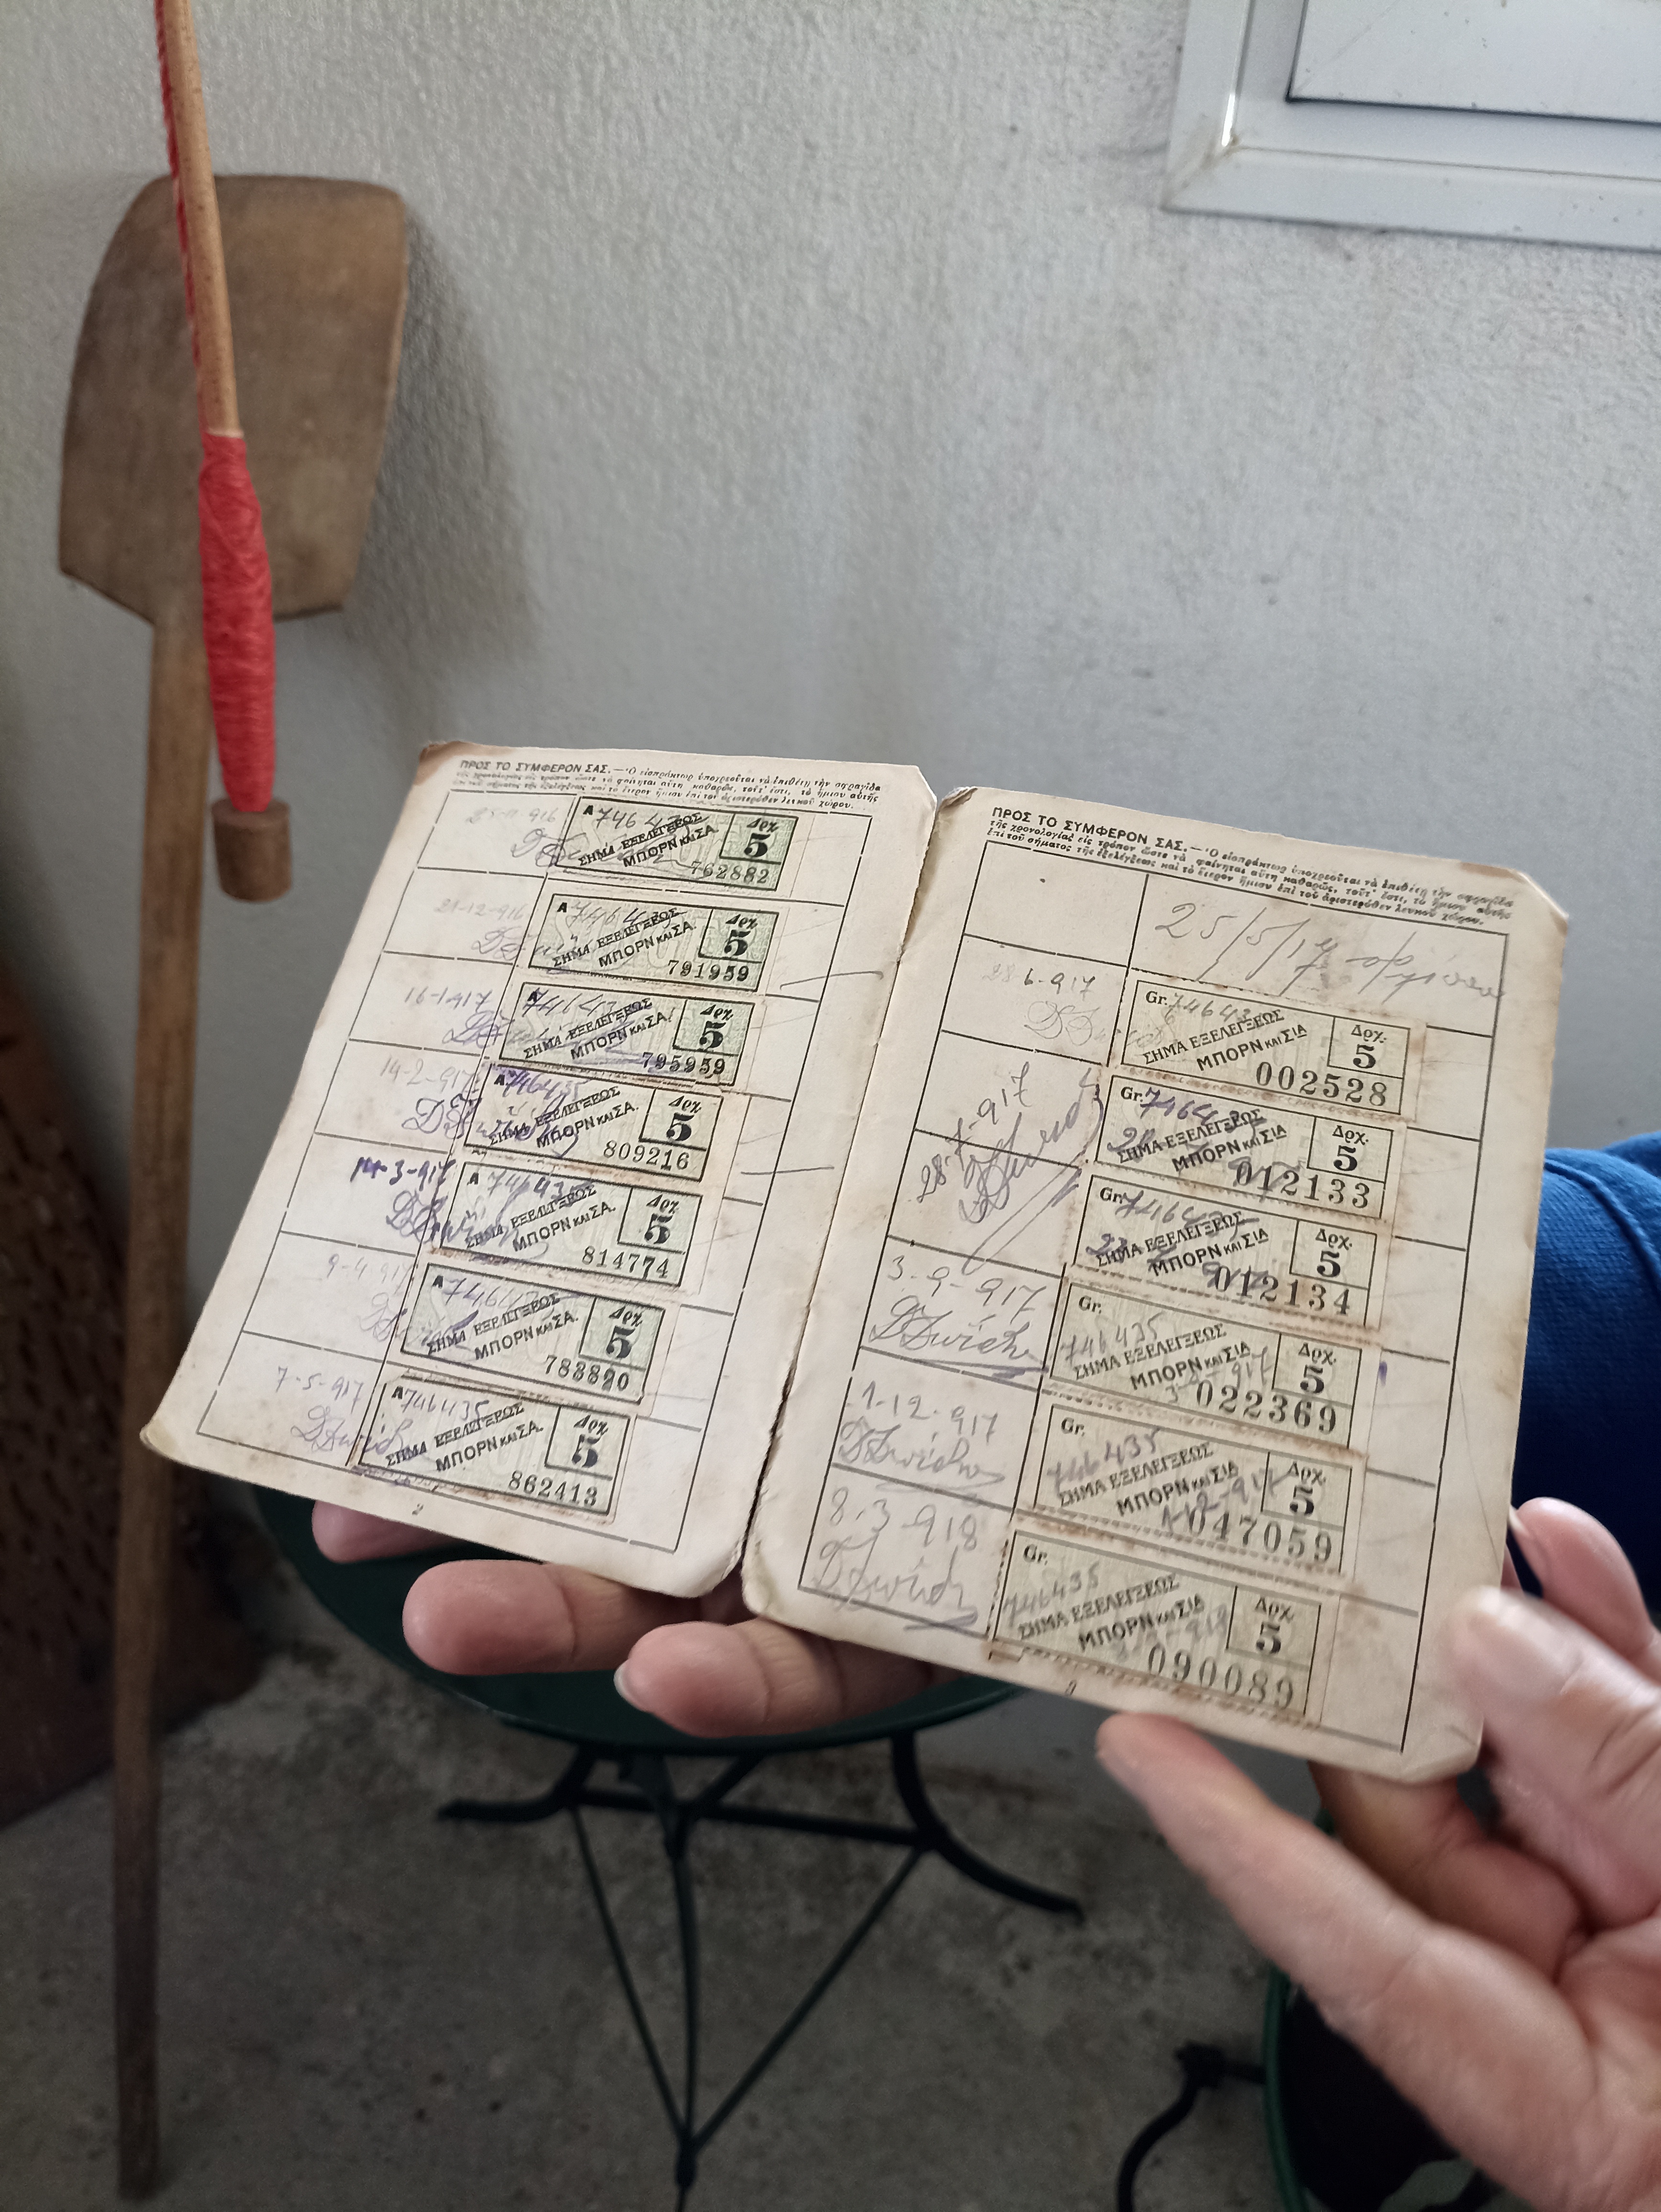 ΠΡΟΣ ΤΟ ΣΥΜΦΕΡΟΝ ΣΑΣ. — Ὁ εἰσπράκτωρ ὑποχρεοῦται νὰ ἐπιθέτῃ τὴν σφραγῖδα
τῆς χρονολογίας εἰς τρόπον ὥστε νὰ φαίνηται αὕτη καθαρῶς, τοὐτ' ἔστι, τὸ ἥμισυ αὐτῆς
ἐπὶ τοῦ σήματος τῆς ἐξελέγξεως καὶ τὸ ἕτερον ἥμισυ ἐπὶ τοῦ ἀριστερόθεν λευκοῦ χώρου.
25-11-916
A 74643
ΣΗΜΑ ΕΞΕΛΕΓΞΕΩΣ
ΜΠΟΡΝ ΚΑΙ ΣΑ.
Δρχ.
5
762882
21-12-916
A 7464
ΣΗΜΑ ΕΞΕΛΕΓΞΕΩΣ
ΜΠΟΡΝ ΚΑΙ ΣΑ.
Δρχ.
5
791959
16-1-917
A 74643
ΣΗΜΑ ΕΞΕΛΕΓΞΕΩΣ
ΜΠΟΡΝ ΚΑΙ ΣΑ.
Δρχ.
5
795959
14-2-917
A 746435
ΣΗΜΑ ΕΞΕΛΕΓΞΕΩΣ
ΜΠΟΡΝ ΚΑΙ ΣΑ.
Δρχ.
5
809216
3-917
A 746435
ΣΗΜΑ ΕΞΕΛΕΓΞΕΩΣ
ΜΠΟΡΝ ΚΑΙ ΣΑ.
Δρχ.
5
814774
9-4-917
A 74643
ΣΗΜΑ ΕΞΕΛΕΓΞΕΩΣ
ΜΠΟΡΝ ΚΑΙ ΣΑ.
Δρχ.
5
783820
7-5-917
A 746435
ΣΗΜΑ ΕΞΕΛΕΓΞΕΩΣ
ΜΠΟΡΝ ΚΑΙ ΣΑ.
Δρχ.
5
862413
2
ΠΡΟΣ ΤΟ ΣΥΜΦΕΡΟΝ ΣΑΣ. — Ὁ εἰσπράκτωρ ὑποχρεοῦται νὰ ἐπιθέτῃ τὴν σφραγῖδα
τῆς χρονολογίας εἰς τρόπον ὥστε νὰ φαίνηται αὕτη καθαρῶς, τοὐτ' ἔστι, τὸ ἥμισυ αὐτῆς
ἐπὶ τοῦ σήματος τῆς ἐξελέγξεως καὶ τὸ ἕτερον ἥμισυ ἐπὶ τοῦ ἀριστερόθεν λευκοῦ χώρου.
25/5/17
28 6-917
Gr. 74643
ΣΗΜΑ ΕΞΕΛΕΓΞΕΩΣ
ΜΠΟΡΝ ΚΑΙ ΣΙΑ
Δρχ.
5
002528
28-7-917
Gr. 7464
ΣΗΜΑ ΕΞΕΛΕΓΞΕΩΣ
ΜΠΟΡΝ ΚΑΙ ΣΙΑ
Δρχ.
5
012133
Gr. 7464
ΣΗΜΑ ΕΞΕΛΕΓΞΕΩΣ
ΜΠΟΡΝ ΚΑΙ ΣΙΑ
Δρχ.
5
012134
3-9-917
Gr.
746435
ΣΗΜΑ ΕΞΕΛΕΓΞΕΩΣ
ΜΠΟΡΝ ΚΑΙ ΣΙΑ
Δρχ.
5
022369
1-12-917
Gr.
746435
ΣΗΜΑ ΕΞΕΛΕΓΞΕΩΣ
ΜΠΟΡΝ ΚΑΙ ΣΙΑ
Δρχ.
5
1-12-917
047059
8-3-918
Gr.
746435
ΣΗΜΑ ΕΞΕΛΕΓΞΕΩΣ
ΜΠΟΡΝ ΚΑΙ ΣΙΑ
Δρχ.
5
090089